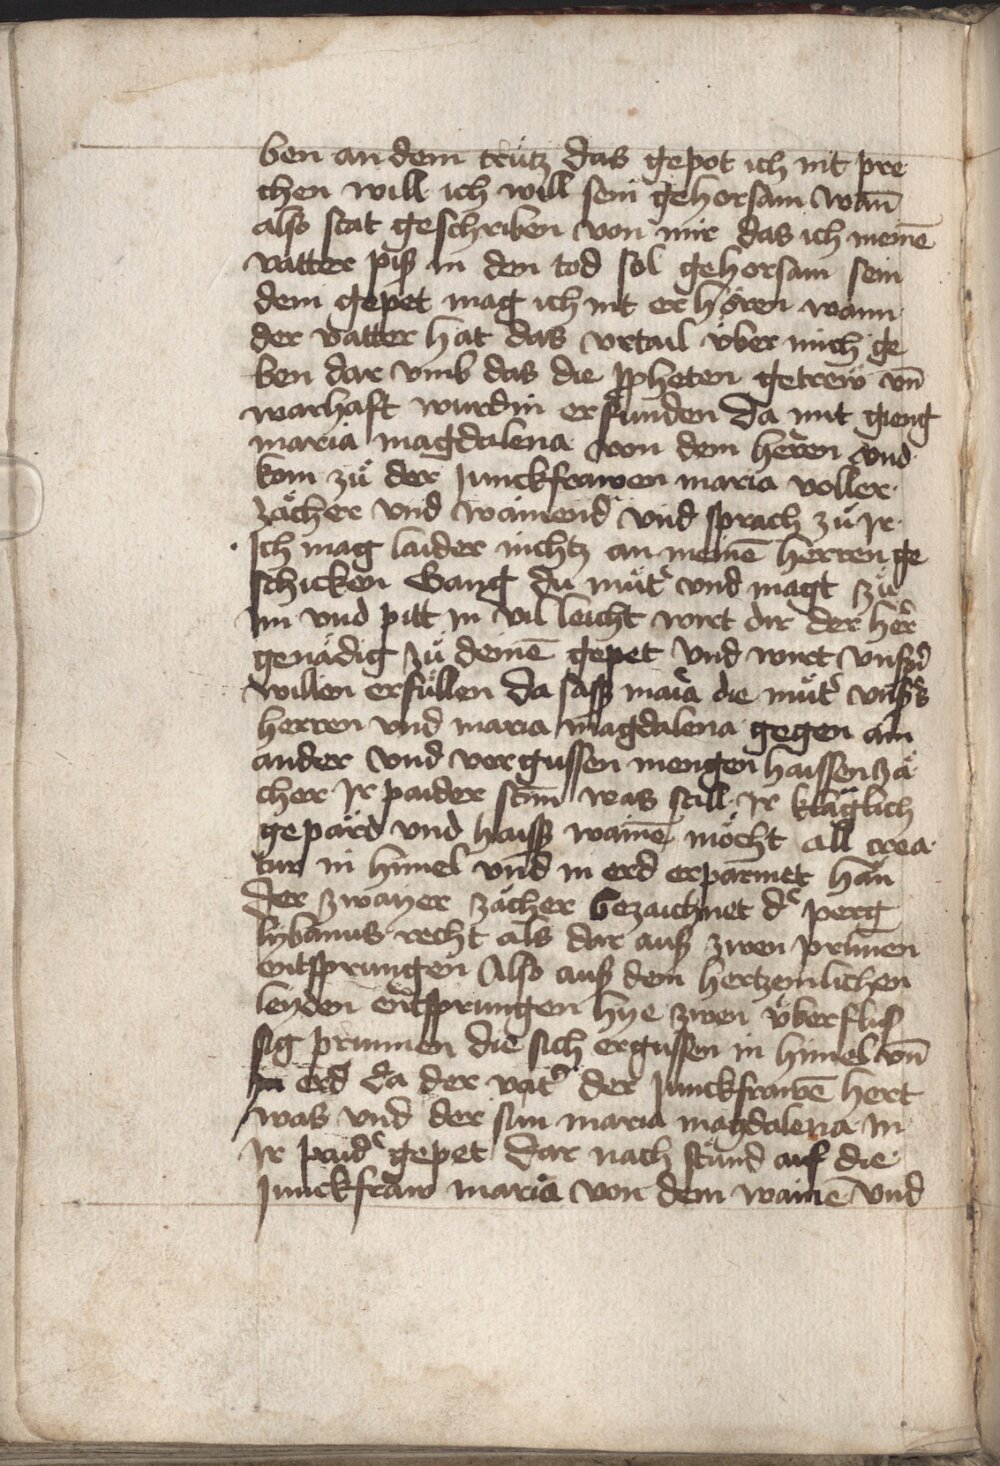 ben an dem crütz das gepot ich nit pre
chen will ich will sein gehorsam wan̄
also stat geschriben von mir das ich meinē
vatter piß in den tod sol gehorsam sein
dem gepet mag ich nit erhören wann
der vatter hat das vrtail über mich ge
ben dar vmb das die ꝓpheten getrew vn̄
warhaft wurdin erfunden Da mit gieng
maria magdalena von dem herren vnd
kom zů der Junckfrawen maria voller
zächer vnd wainend vnd sprach zů Jr
Ich mag laider nichtz an meinē herren ge
schicken Gang du můtˀ vnd magt zů
im vnd pitt in vil leicht wirt dir der herˀ
genädig zů deinē gepet vnd wirt vnsˀn
willen erfüllen Da saß maria die můtˀ vnsˀs
herren vnd maria magdalena gegen ain
ander vnd vergussen mengen haissen zä
cher Jr paider stim̄ was still Jr kläglich
gepärd vnd haiß wainē möcht all crea
tur in himel vnd in erd erparmet han
Der zwayer zächer bezaichnet dˀ perg
lybanus recht als dar auß zwen prunen
entsprungen Also auß dem hertzenlichen
leyden entsprungen hye zwen überflüs
sig prunnen die sich ergussen in himel vn̄
in erd Da der vatˀ der Junckfrawē hert
was vnd der sun maria magdalena in
Jr paidˀ gepet Dar nach stund auf die
Junckfraw maria von dem wainē vnd